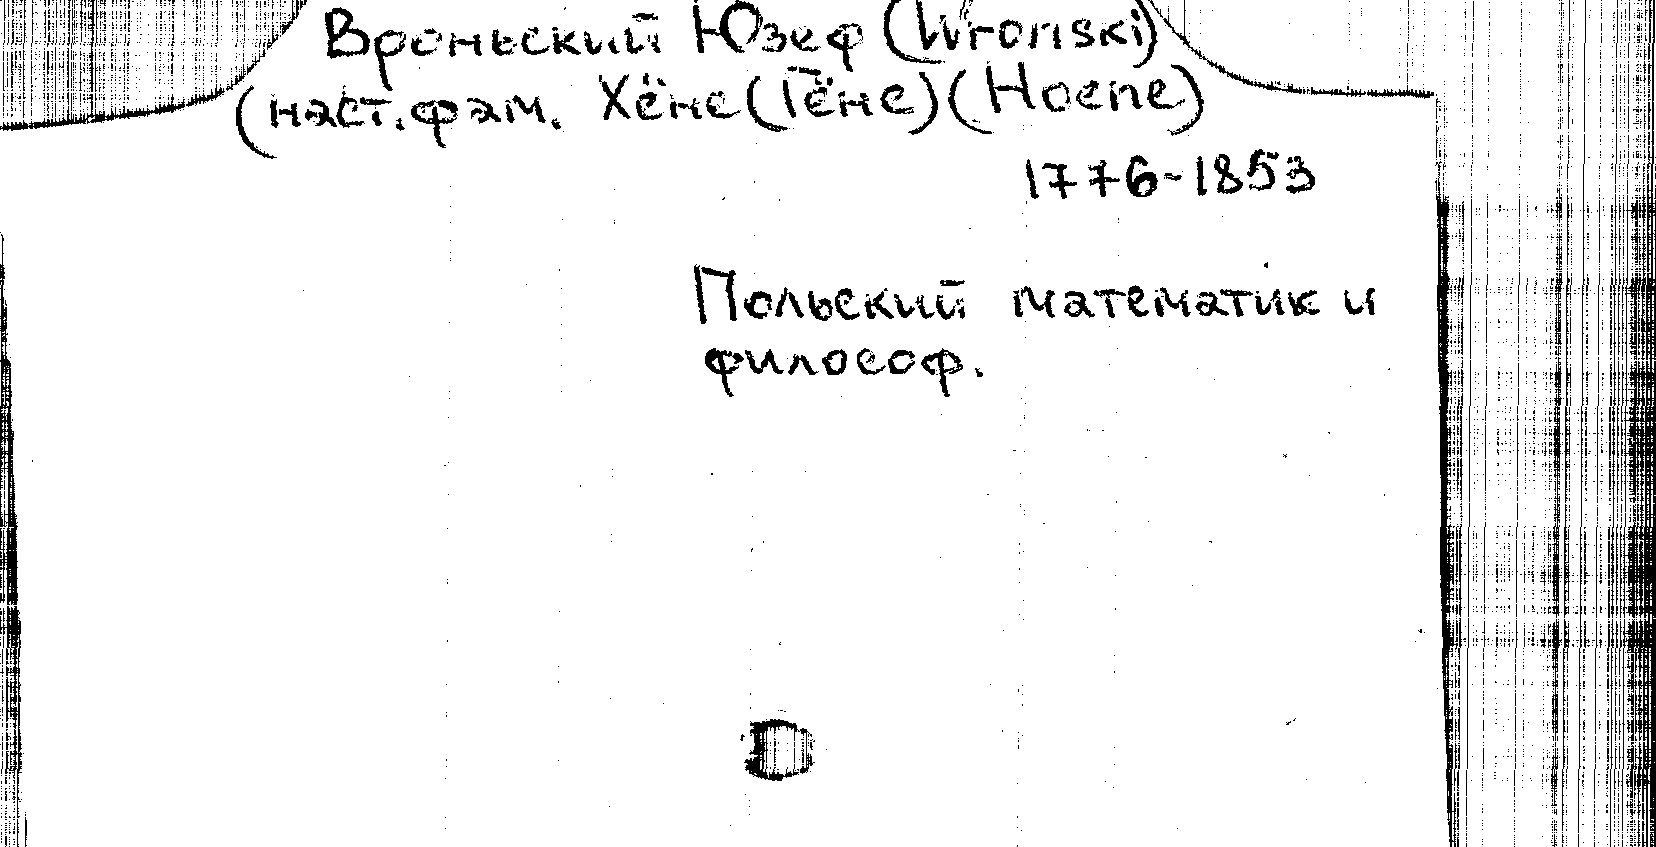 Вроньский Юзеф (Wronski)
(наст. фам. Хёне (Гёне) (Hoene)
1776-1853
Польский математик и
философ.